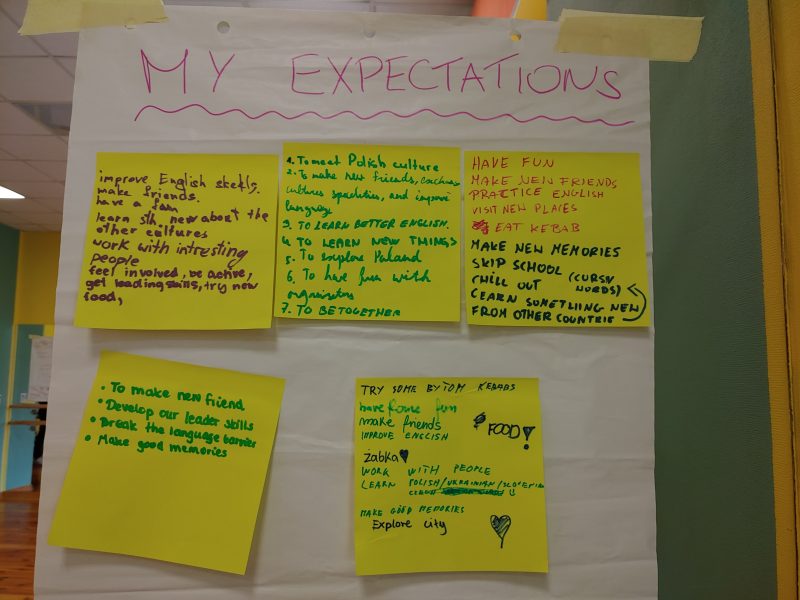 MY EXPECTATIONS
improve English skills,
make friends.
have a fun
learn sth. new about the
other cultures
work with intresting
people
feel involved, be active,
get leading skills, try new
food,
1. To meet Polish culture
2. To make new friends,
cultures specialities, and improve
language
3. TO LEARN BETTER ENGLISH.
4. TO LEARN NEW THINGS
5. To explore Poland
6. To have fun with
organisators
7. TO BE TOGETHER
HAVE FUN
MAKE NEW FRIENDS
PRACTICE ENGLISH
VISIT NEW PLACES
EAT KEBAB
MAKE NEW MEMORIES
SKIP SCHOOL (CURSV
CHILL OUT WORDS)
LEARN SOMETHING NEW
FROM OTHER COUNTRIE
• To make new friend
• Develop our leader skills
• Break the language barrier
• Make good memories
TRY SOME BYTOM KEBABS
have some fun
make friends
IMPROVE ENGLISH
FOOD!
żabka
WORK WITH PEOPLE
LEARN POLISH/UKRAINIAN/SLOVENIA
CZECH
MAKE GOOD MEMORIES
Explore city